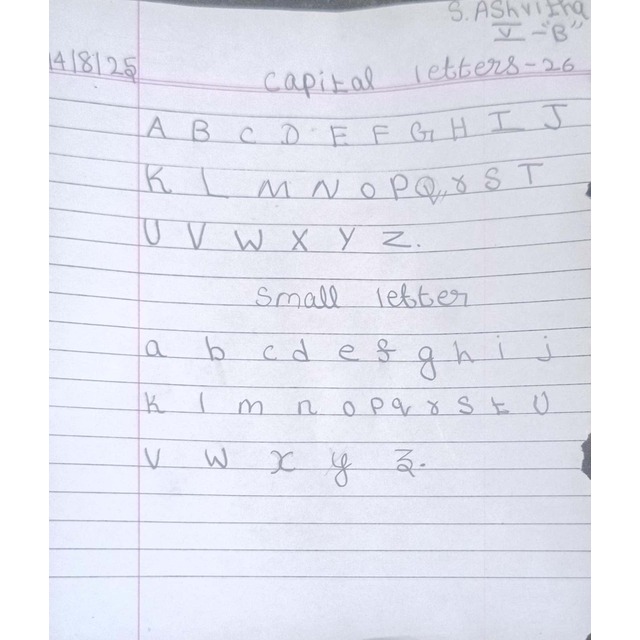 S. AShvitha
V - "B"
14/8/25
capital letters - 26
A B C D E F G H I J
K L M N O P Q r S T
U V W X Y Z.
Small letter
a b c d e f g h i j
k l m n o p q r s t U
V W x y z.